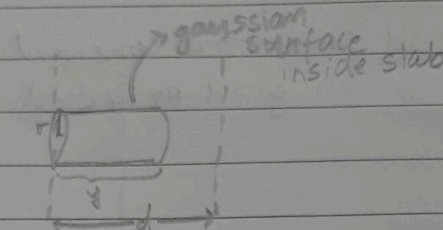 gaussian
surface
inside slab
r
y
d